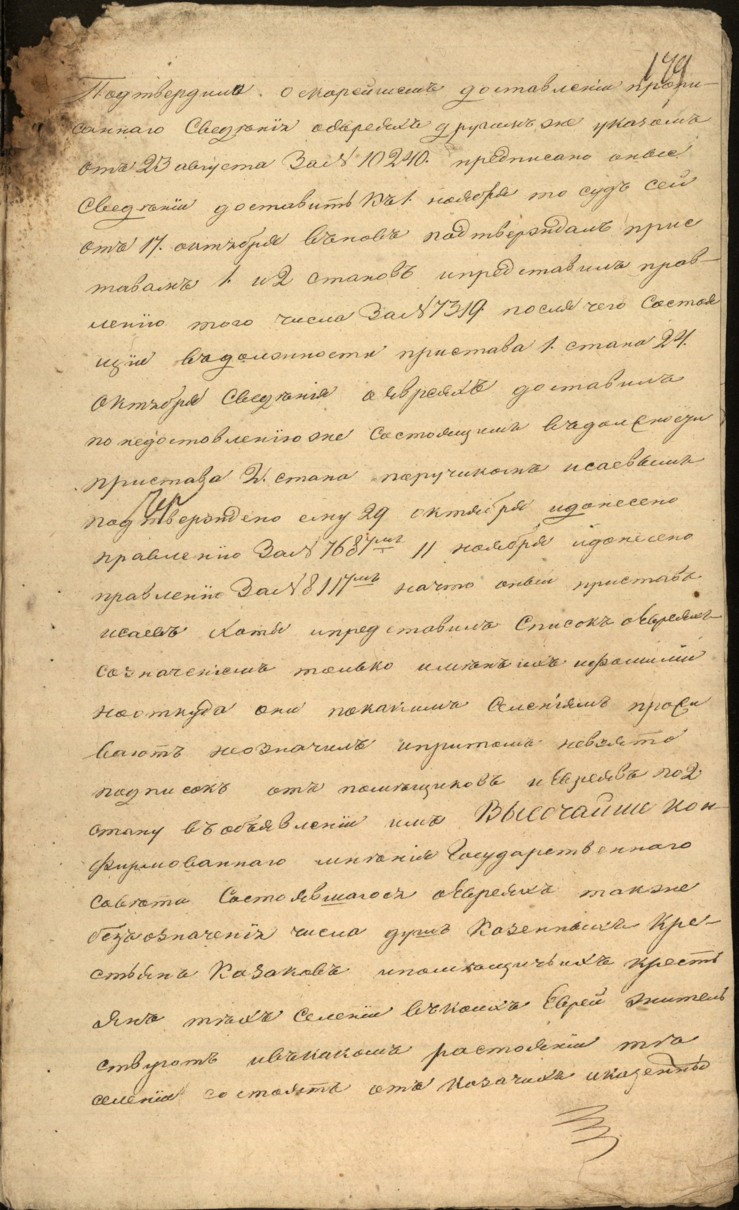 179
Подтвердила о скорейшемъ доставленіи пропи-
саннаго сведѣнія обѣвреяхъ другимъ же указомъ
отъ 23 августа За №10240. предписано оные
Сведѣніи доставить къ 1. ноября то судъ сей
отъ 17. октября вновь подтверждалъ прис
тавамъ 1. и 2 становъ и представилъ прав-
лению того числа За №7319. после чего состоя
щій въ должности пристава 1. стана 24.
октября сведѣнія о явреяхъ доставилъ
по недоставлению же состоящимъ въ должности
пристава 2. стана поручикомъ исаевымъ
подтверждено ему 29 октября и донесено
правлению За №7687мъ 11 ноября и донесено
правлению За №8117мъ на что оный приставъ
исаевъ хотя и представилъ списокъ о Евреяхъ
со значениемъ только именъ ихъ и фамилии
но откуда они по какимъ селениямъ прожи
ваютъ не означилъ и притомъ не взято
подписокъ отъ помѣщиковъ и Евреявъ по 2
стану въ объявлении имъ Высочайше кон-
фирмованнаго мнѣнія Государственнаго
совѣта состоявшагося о Евреяхъ также
безъ означенія числа душъ казенныхъ кре-
стьянъ казаковъ и помѣщичьихъ кресть
янъ тѣхъ селеніи въ коихъ Еврей житель
ствуютъ и въ какомъ растояніи тѣ
селенія состоятъ отъ казачихъ и казенны